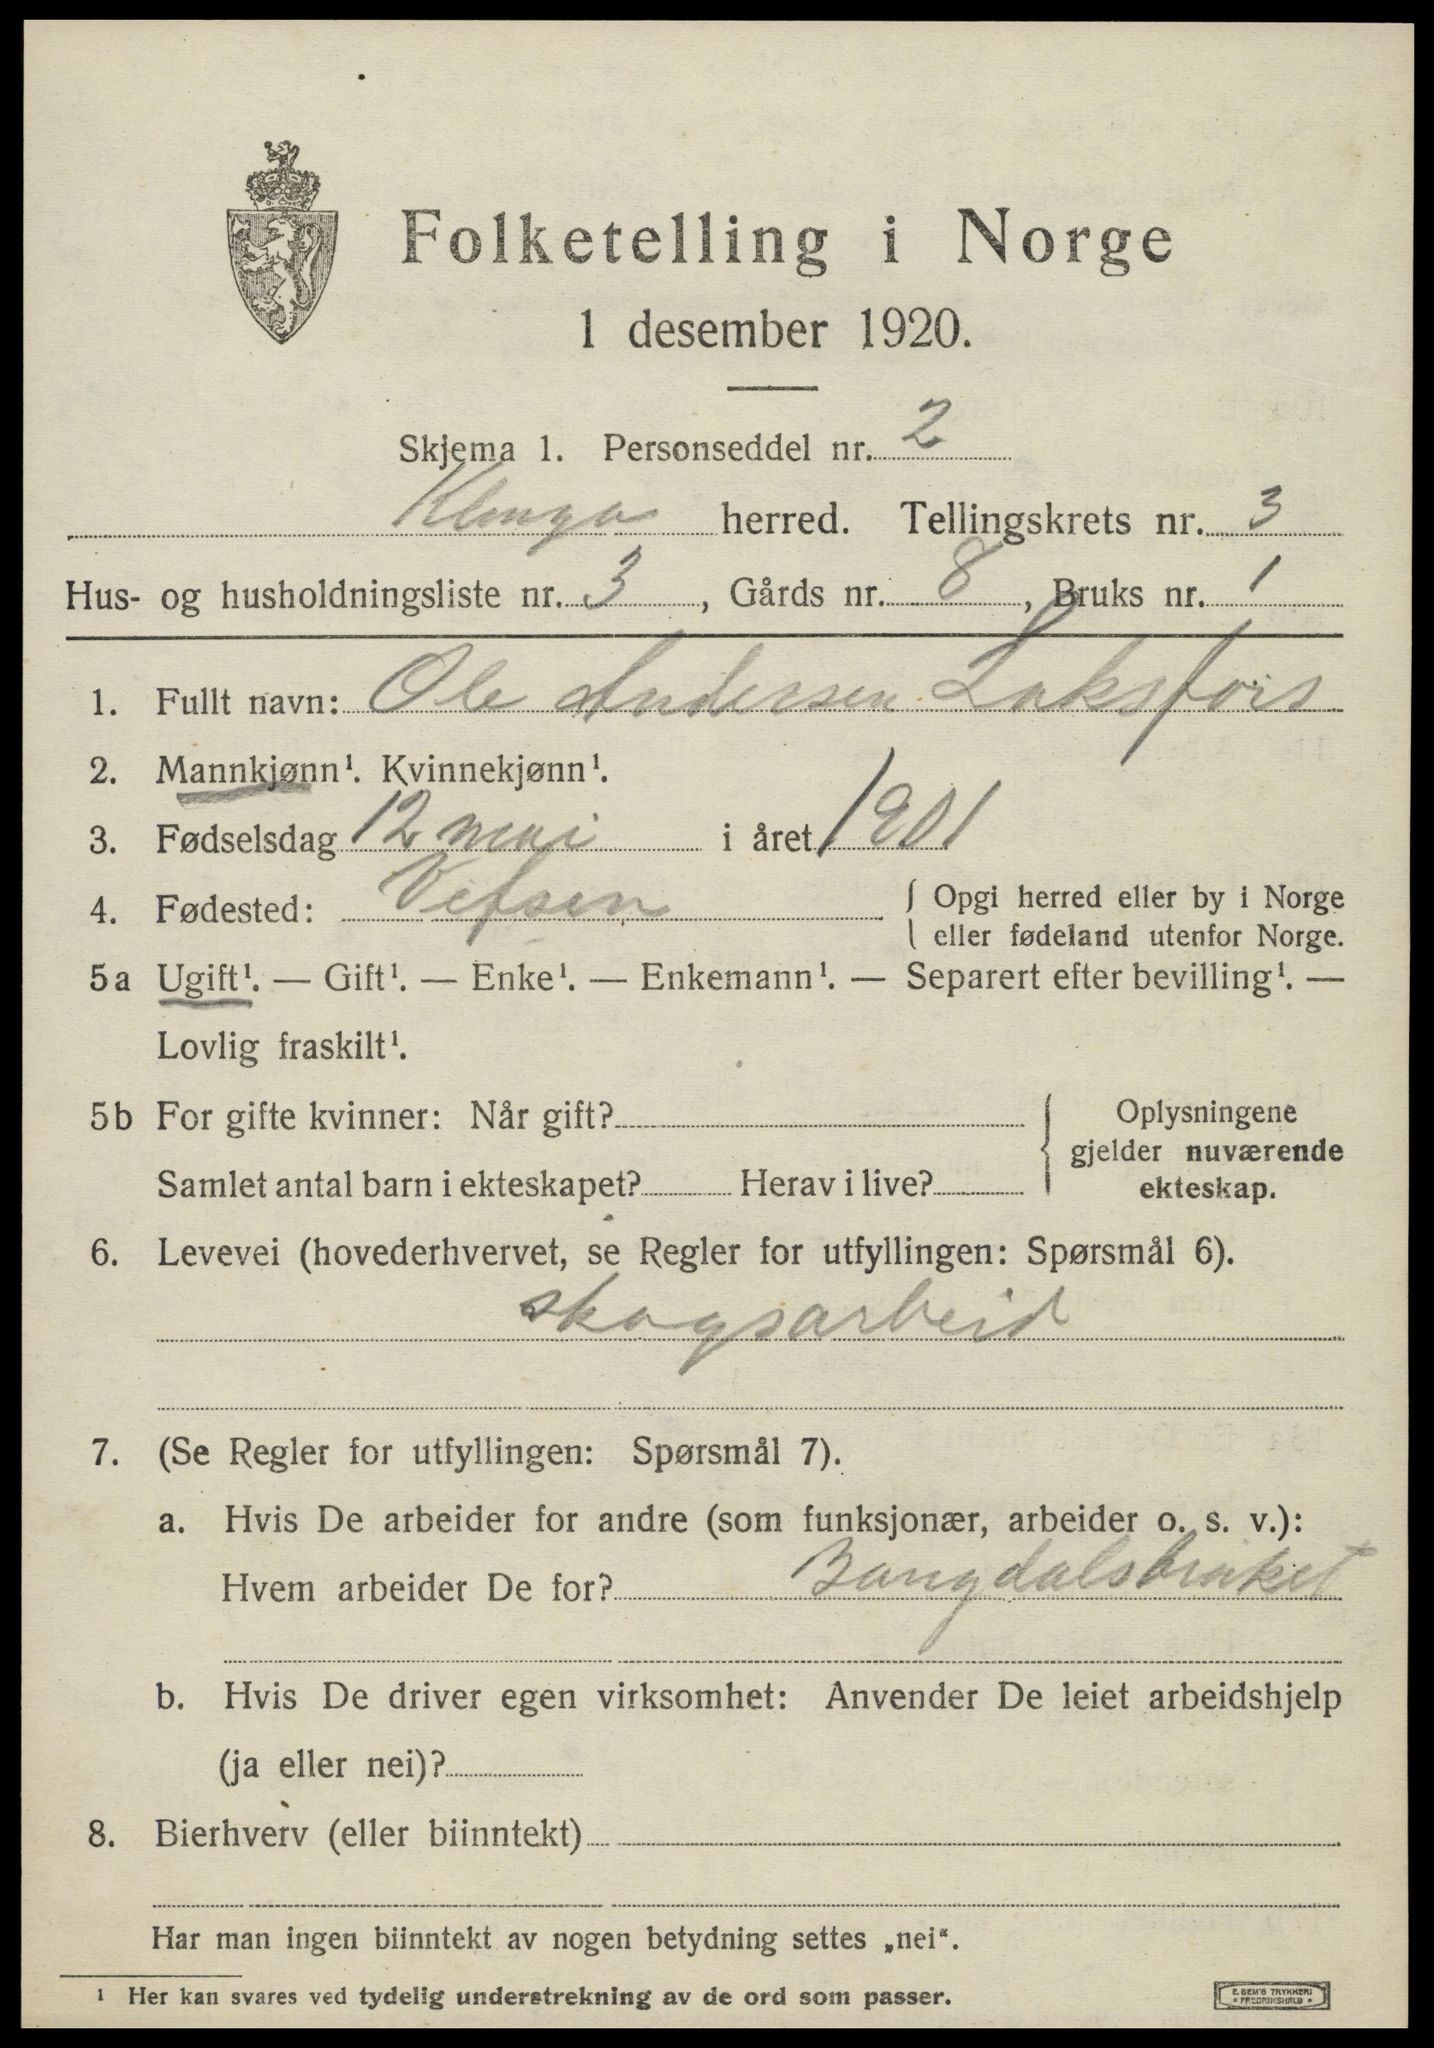 Folketelling i Norge
1 desember 1920.
Skjema 1. Personseddel nr. 2
Klinga herred. Tellingskrets nr. 3
Hus- og husholdningsliste nr. 3, Gårds nr. 8, Bruks nr. 1
1. Fullt navn: Ole Andersen Laksfors
2. Mannkjønn¹. Kvinnekjønn¹.
3. Fødselsdag 12 mai i året 1901
4. Fødested: Vefsen { Opgi herred eller by i Norge
eller fødeland utenfor Norge.
5a Ugift¹. — Gift¹. — Enke¹. — Enkemann¹. — Separert efter bevilling¹. —
Lovlig fraskilt¹.
5b For gifte kvinner: Når gift? { Oplysningene
gjelder nuværende
Samlet antal barn i ekteskapet? Herav i live? ekteskap.
6. Levevei (hovederhvervet, se Regler for utfyllingen: Spørsmål 6).
skogsarbeid
7. (Se Regler for utfyllingen: Spørsmål 7).
a. Hvis De arbeider for andre (som funksjonær, arbeider o. s. v.):
Hvem arbeider De for? Bangdalsbruket
b. Hvis De driver egen virksomhet: Anvender De leiet arbeidshjelp
(ja eller nei)?
8. Bierhverv (eller biinntekt)
Har man ingen biinntekt av nogen betydning settes „nei“.
¹ Her kan svares ved tydelig understrekning av de ord som passer.
E. SEM'S TRYKKERI
• FREDRIKSHALD •